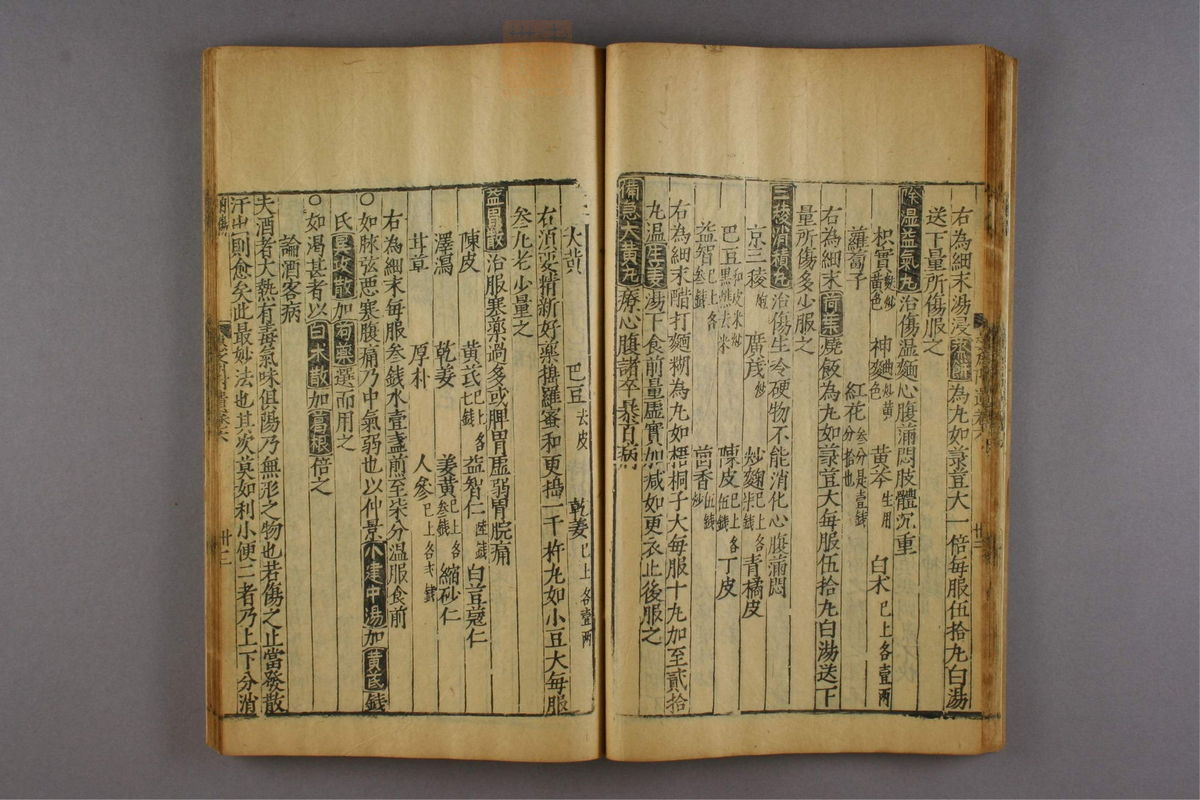 右為細末湯浸蒸餅為丸如菉豆大一倍每服伍拾丸白湯
送下量所傷服之
除温益氣丸治傷温麵心腹滿悶肢體沉重
枳實麩炒黄色 神麯炒黄色 黄芩生用 白术已上各壹兩
蘿蔔子 紅花叁分是壹錢分拾也
右為細末荷葉燒飯為丸如菉豆大每服伍拾丸白湯送下
量所傷多少服之
三稜消積丸治傷生冷硬物不能消化心腹滿悶
京三稜炮 廣茂炒 炒麯已上各柒錢 青橘皮
巴豆和皮米炒黒焦去米 陳皮已上各伍錢 丁皮
益智已上各叁錢 茴香炒
右為細末醋打麵糊為丸如梧桐子大每服十九加至貳拾
丸温生姜湯下食前量虚實加减如更衣止後服之
備急大黄丸療心腹諸卒暴百病
大黄 巴豆去皮 乾姜已上各壹兩
右湏要精新好藥擣羅蜜和更搗一千杵丸如小豆大每服
叁丸老少量之
益胃散治服寒藥過多或脾胃虚弱胃脘痛
陳皮 黄芪已上各七錢 益智仁陸錢 白荳蔻仁
澤瀉 乾姜 姜黄已上各叁錢 縮砂仁
甘草 厚朴 人參已上各弍錢
右為細末每服叁錢水壹盞煎至柒分温服食前
○如脉弦惡寒腹痛乃中氣弱也以仲景小建中湯加黄芪錢
氏異攻散加芍藥選而用之
○如渴甚者以白术散加葛根倍之
論酒客病
夫酒者大熱有毒氣味俱陽乃無形之物也若傷之止當發散
汗出則愈矣此最妙法也其次莫如利小便二者乃上下分消
卅二